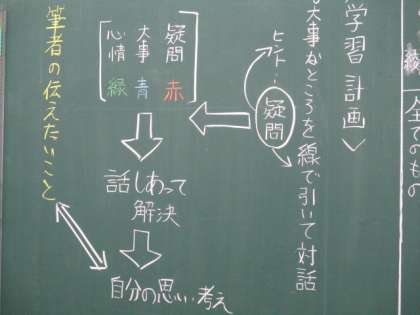 一生もの
学習計画
大事なところを線で引いて対話
ヒント…
疑問
疑問 赤
大事 青
心情 緑
話しあって
解決
自分の思い・考え
筆者の伝えたいこと